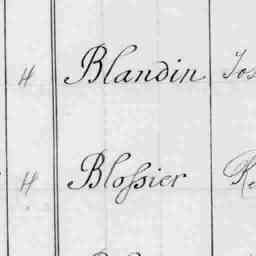 H Blandin Jos
H Blossier Re